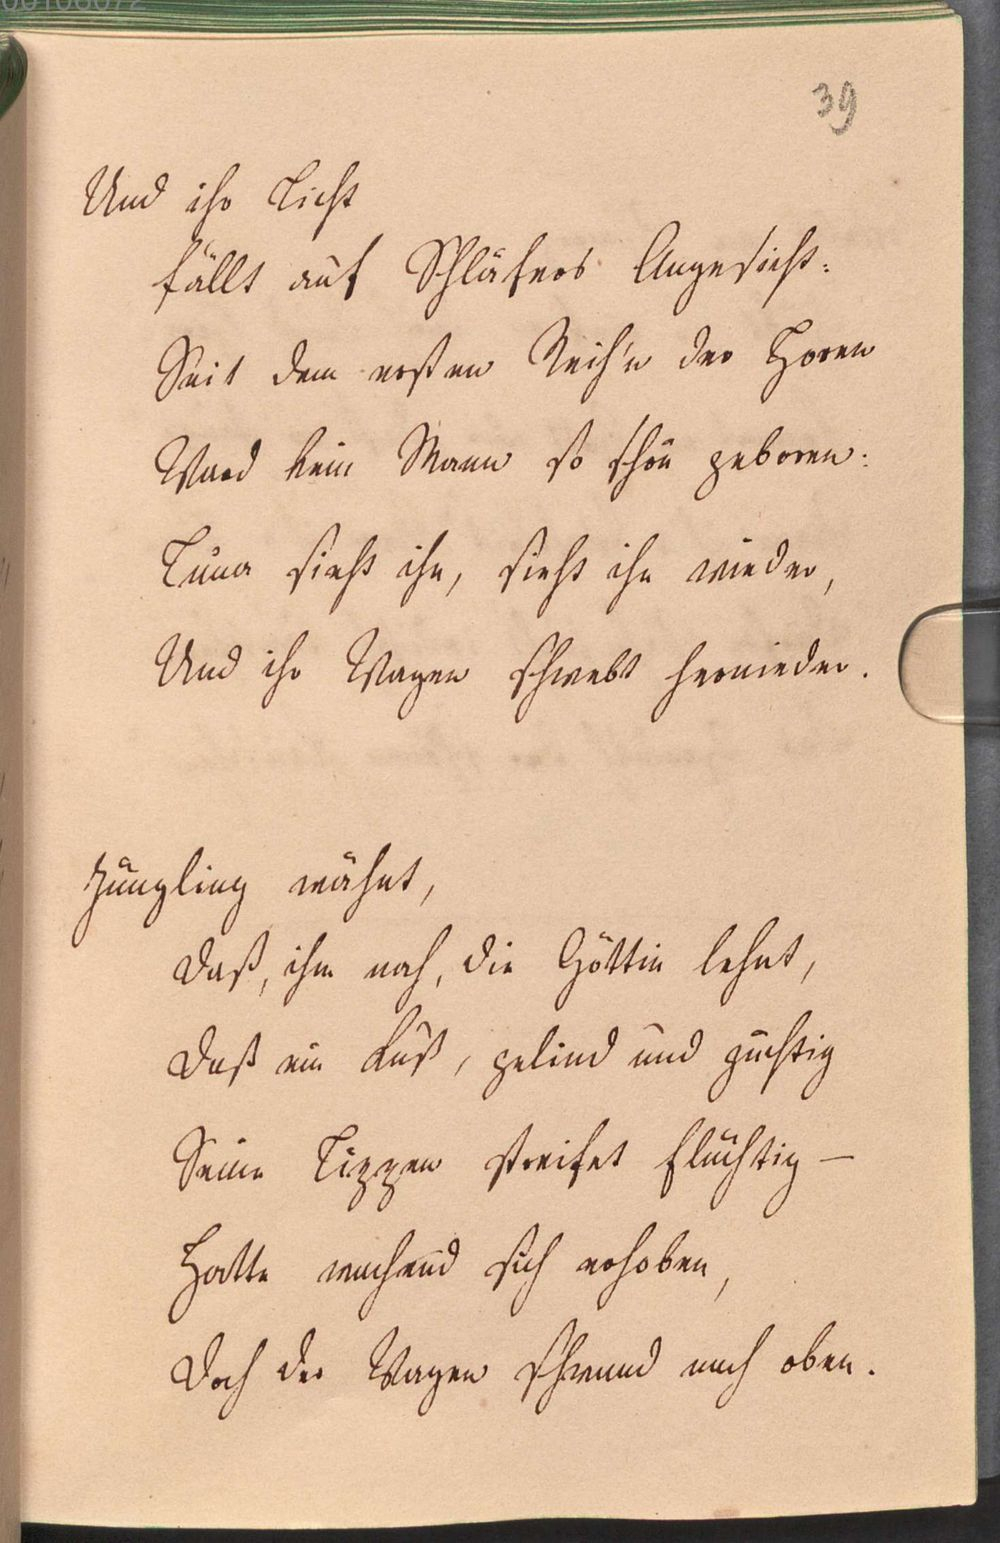 39
Und ihr Licht
fällt auf Schläfers Angesicht:
Seit dem ersten Reih'n der Horen
Ward kein Mann so schön geboren:
Luna sieht ihn, sieht ihn wieder,
Und ihr Wagen schwebt hernieder.
Jüngling wähnt,
Daß, ihm nah, die Göttin lehnt,
Daß ein Kuß, gelind und züchtig
Seine Lippen streifet flüchtig —
Hatte wachend sich erhoben,
Doch der Wagen schwand nach oben.